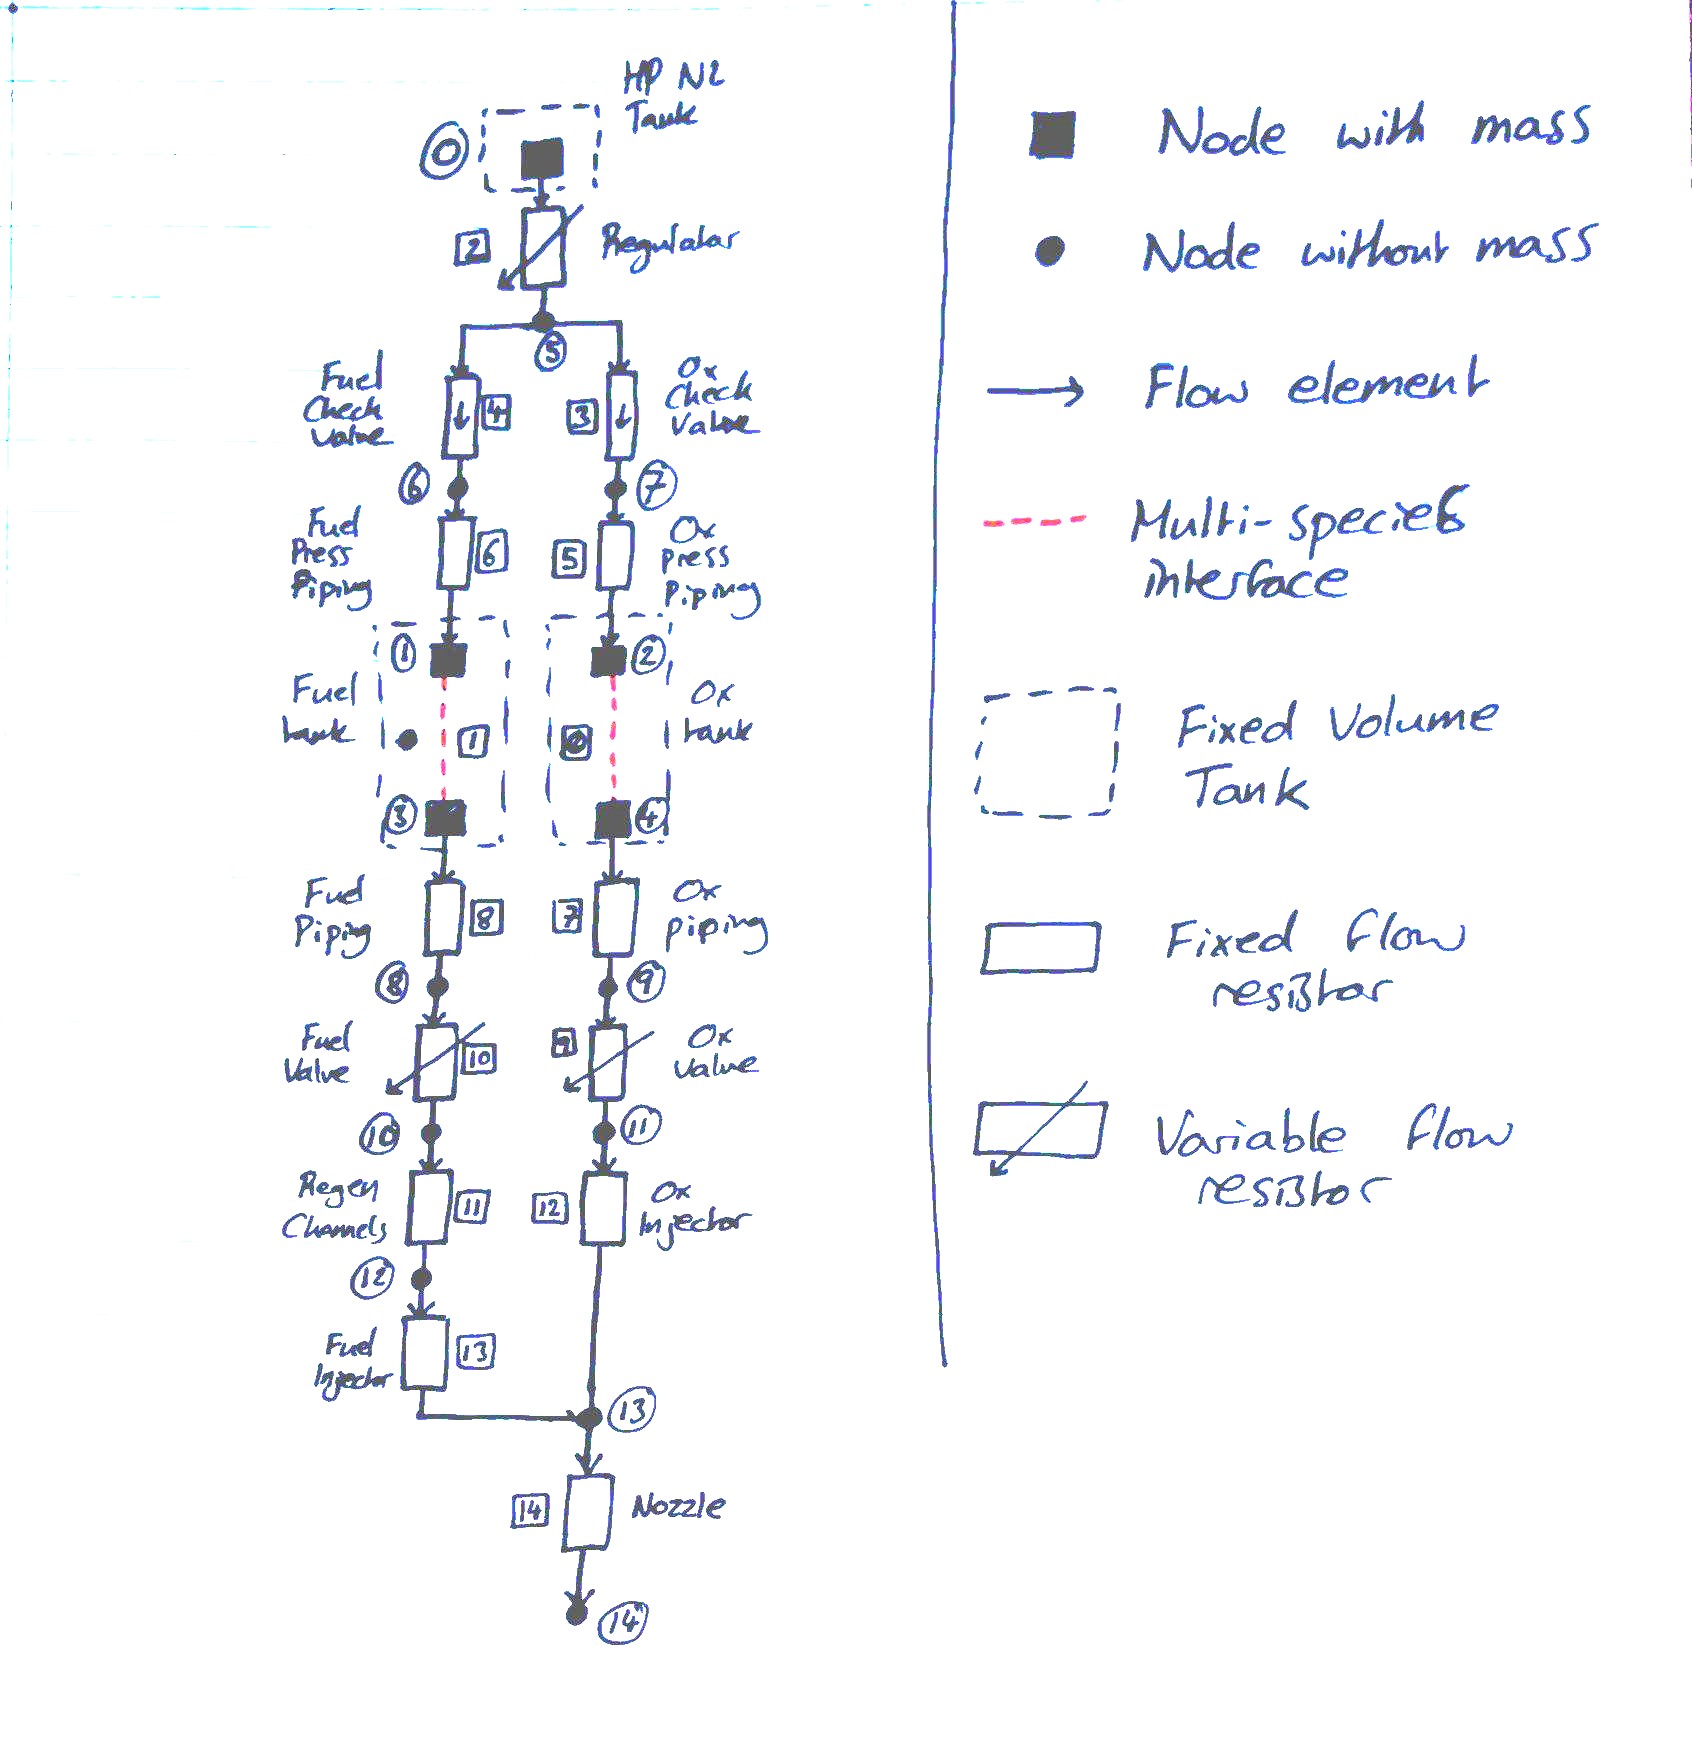 HP N2
Tank
0
2
Regulator
5
Fuel
Check
Valve
4
3
Ox
Check
Valve
6
7
Fuel
Press
Piping
6
5
Ox
Press
Piping
1
2
Fuel
tank
1
Ox
tank
3
4
Fuel
Piping
8
7
Ox
piping
8
9
Fuel
Valve
10
9
Ox
Valve
10
11
Regen
Channels
11
12
Ox
Injector
12
Fuel
Injector
13
13
14
Nozzle
14
Node with mass
Node without mass
Flow element
Multi-species
interface
Fixed Volume
Tank
Fixed flow
resistor
Variable flow
resistor